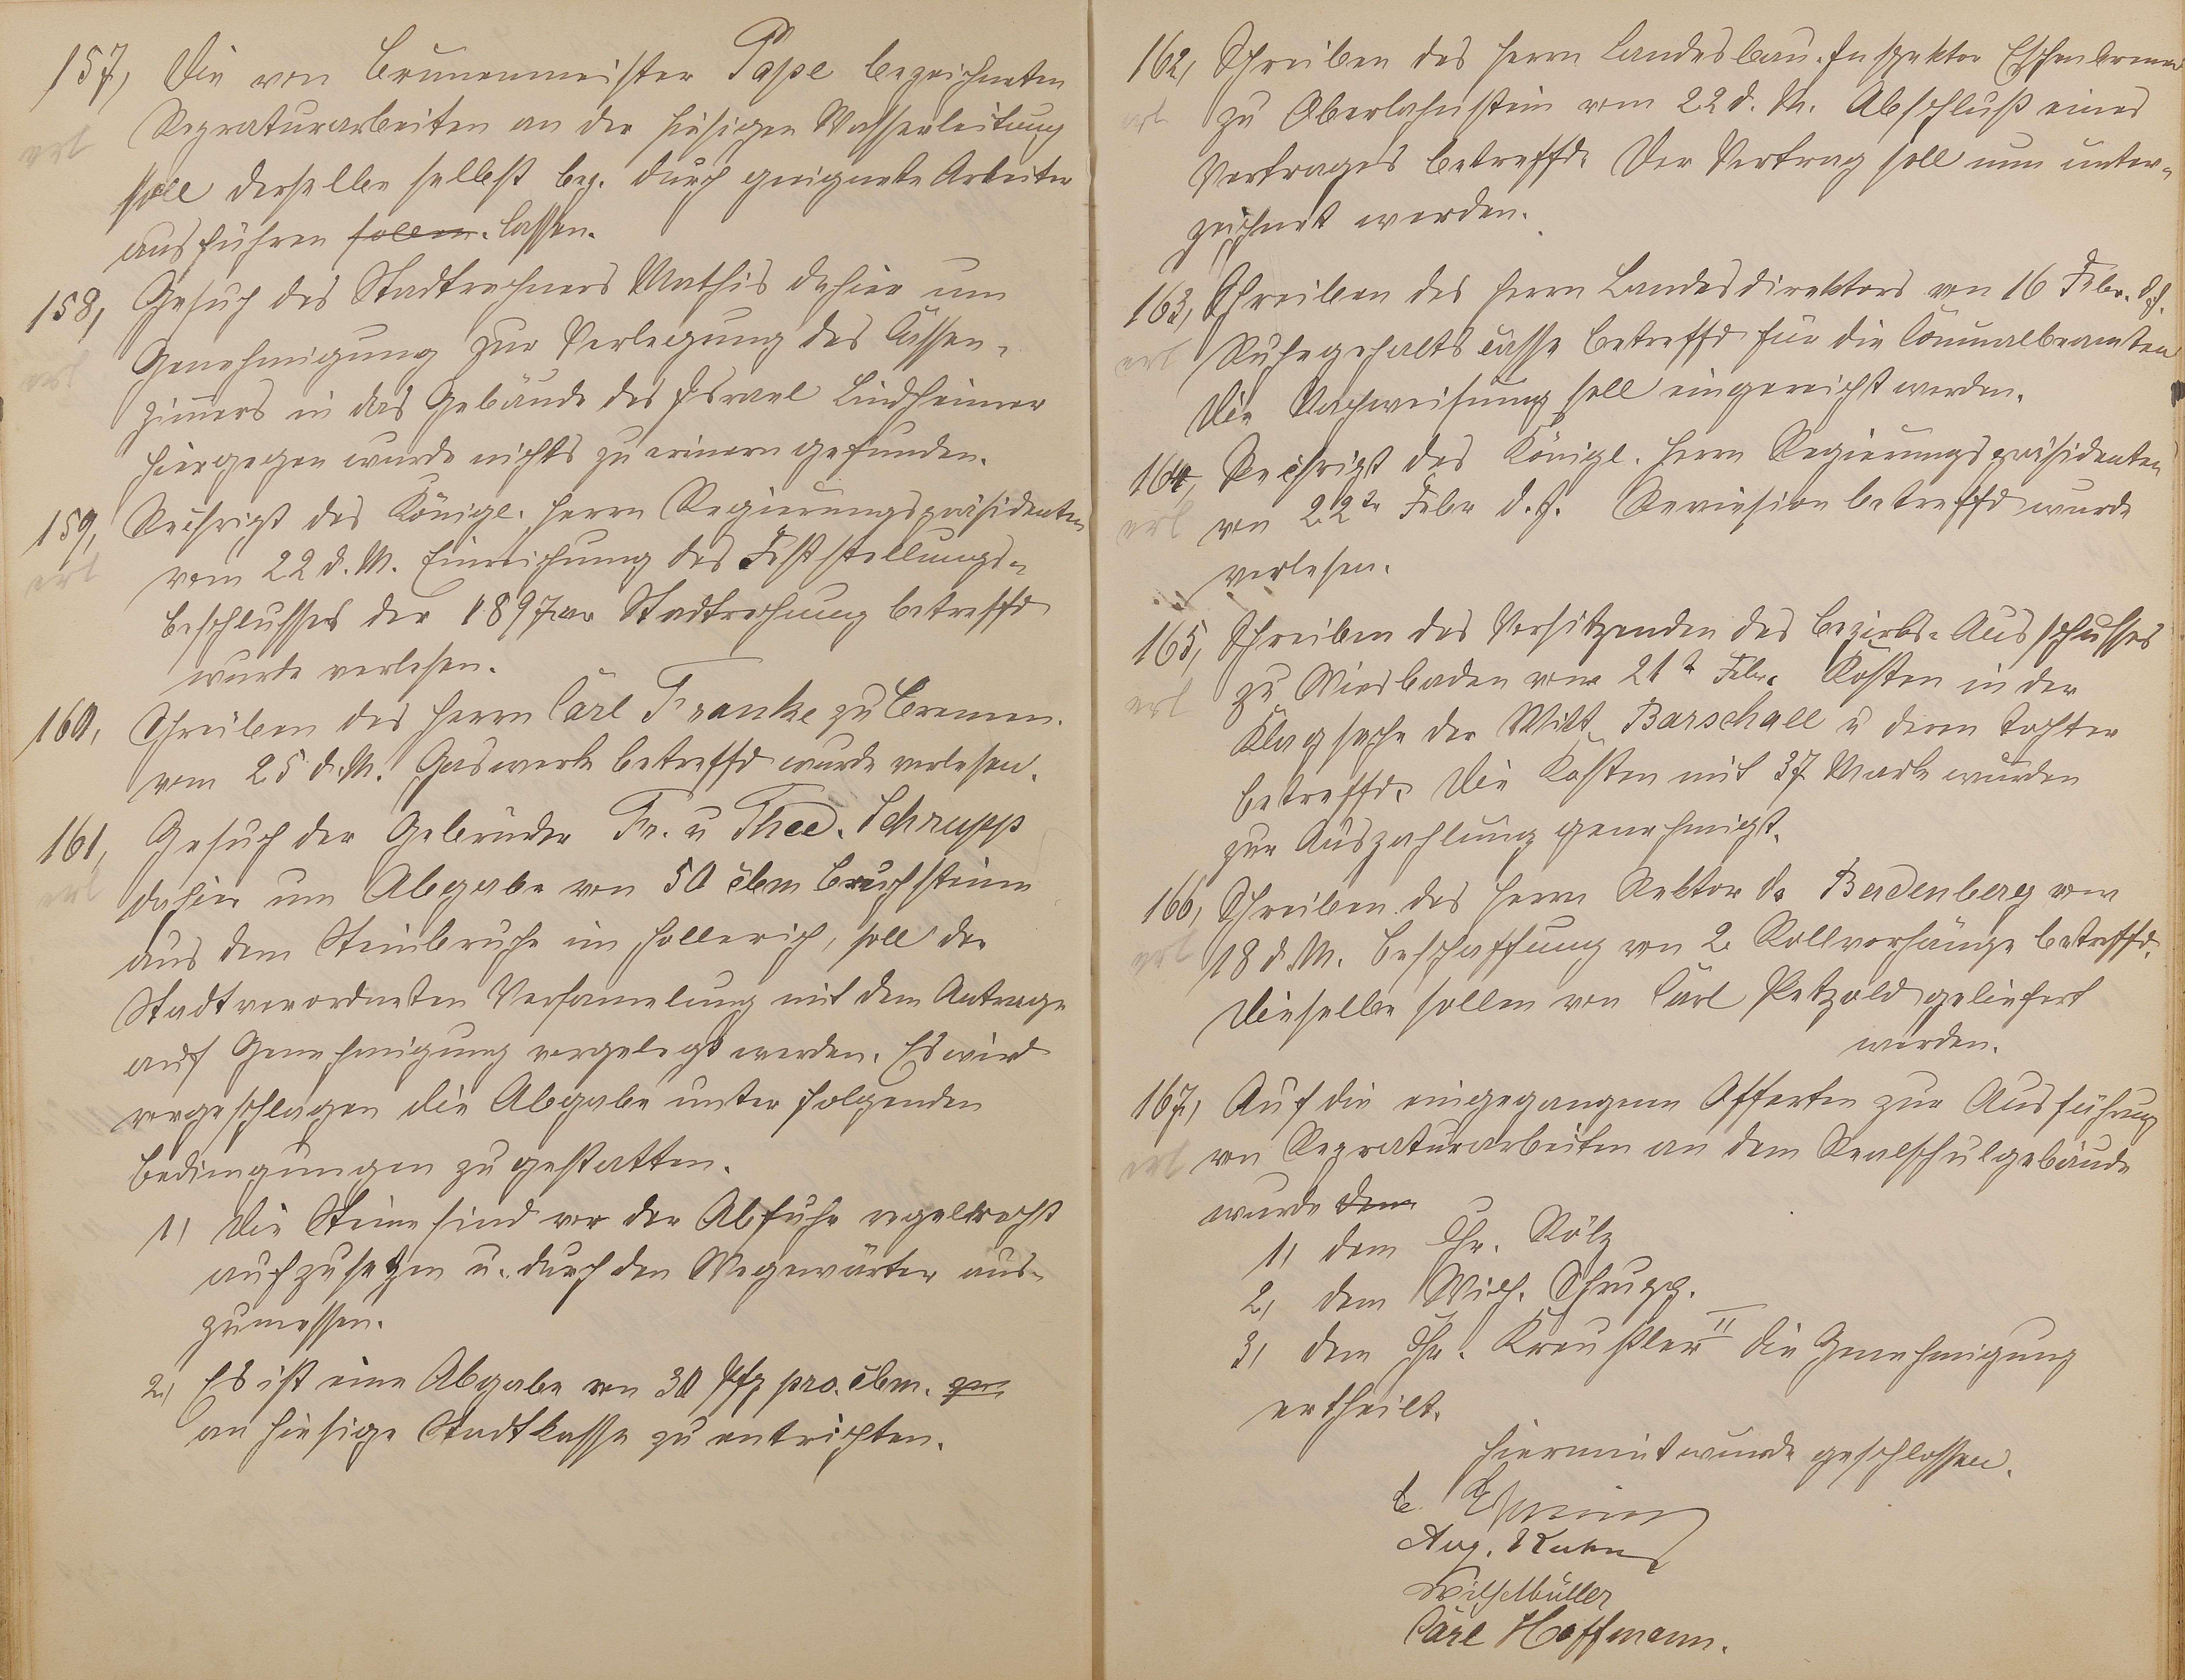 157, Die von Brunnenmeister Pape bezeichneten
erl Repraturarbeiten an der hiesigen Wasserleitung
soll derselbe selbst bez. durch geeignete Arbeiter
ausführen sollen. lassen.
158, Gesuch des Stadtrechners Mathis dahier um
erl Genehmigung zur Verlegung des Cassen-
zimers in das Gebäude des Israel Lindheimer
hiergegen wurde nichts zu erinern gefunden.
159, Rechript des Königl. Herrn Regierungspräsidenten
erl vom 22 d. M. Einreichung des Feststellungs-
beschlusses der 1897er Stadtrechnung betreffd
wurde verlesen.
160, Schreiben des Herrn Carl Franke zu Bremen.
vom 25 d. M. Gaswerk betreffd wurde verlesen.
161, Gesuch der Gebrüder Fr. u Theod. Schrupp
erl dahier um Abgabe von 50 cbm Bruchsteine
aus dem Steinbruche im Hollerich, soll der
Stadtverordneten Versamelung mit dem Antrage
auf Genehmigung vorgelegt werden. Es wird
vorgeschlagen die Abgabe unter folgenden
Bedingungen zu gestatten.
1, Die Steine sind vor der Abfuhr regelrecht
aufzusetzen u. durch den Wegewärter aus-
zumessen.
2, Es ist eine Abgabe von 30 Pfg pro. cbm. zu
an hiesige Stadtkasse zu entrichten.
162, Schreiben des Herrn Landesbau-Inspektor Eschenbrenner
erl zu Oberlahnstein vom 22 d. M. Abschluß eines
Vertrages betreffd. Der Vertrag soll nun unter-
zeichnet werden.
163, Schreiben des Herrn Landesdirektors von 16 Febr. d. J.
erl Ruhegehaltscasse betreffd für die Comunalbeamten
Die Nachweisung soll eingereicht werden.
164, Rechript des Königl. Herrn Regierungspräsidenten
erl von 22n Febr d. J. Revision betreffd wurde
verlesen.
165, Schreiben des Vorsitzenden des Bezirks-Ausschusses
erl zu Wiesbaden vom 21t Febr. Kosten in der
Klagsache der Witt. Barschall u deren Tochter
betreffd. Die Kosten mit 37 Mark wurden
zur Auszahlung genehmigt.
166, Schreiben des Herrn Rektor Dr Badenberg vom
erl 18 d. M. Beschaffung von 2 Rollvorhänge betreffd.
Dieselbe sollen von Carl Petzold geliefert
werden.
167, Auf die eingegangene Offerten zur Ausführung
erl von Repraturarbeiten an dem Realschulgebäude
wurde dem
1, dem Chr. Rölz
2, dem Wilh. Schrupp.
3, dem Chr. Kreußler II die Genehmigung
ertheilt.
Hiermit wurde geschlossen.
Aug. Kuhn
Wilh Müller
Carl Hoffmann.